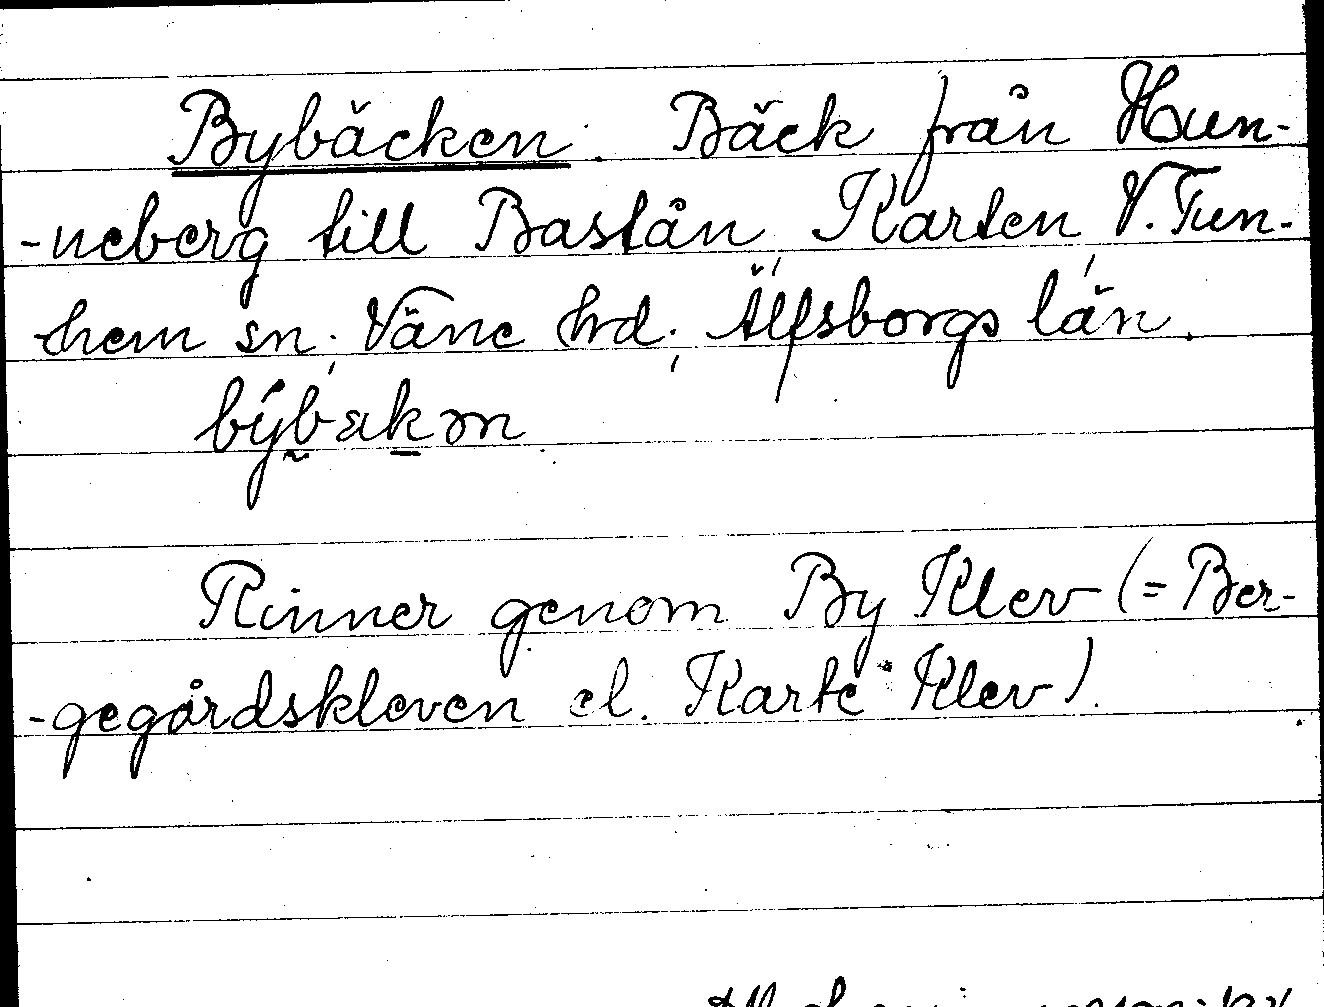 Bybäcken. Bäck från Hun-
-neberg till Bastån, Karten, V. Tun-
hem sn; Väne hrd; Älfsborgs län.
Rinner genom By Klev (= Ber-
-gegårdskleven el. Karte Klev).